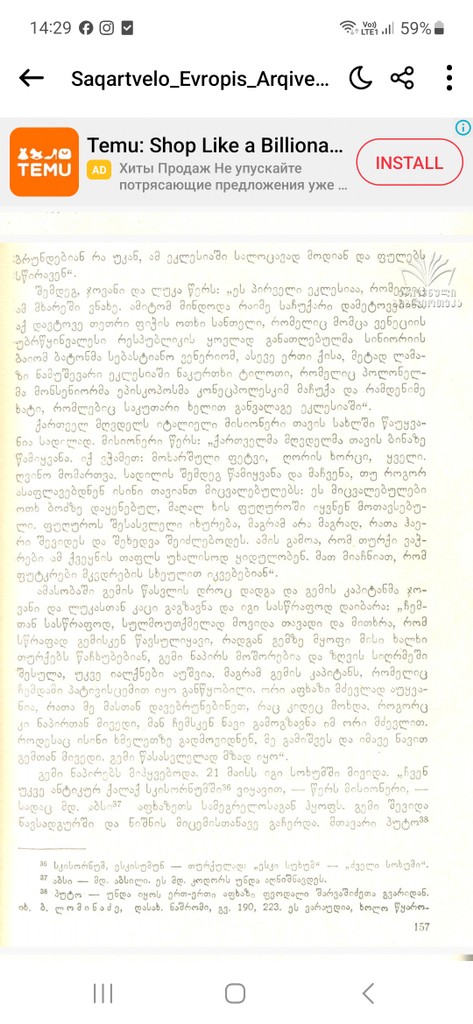 14:29
59%
Saqartvelo_Evropis_Arqive...
Temu: Shop Like a Billiona...
TEMU
AD
Хиты Продаж Не упускайте
потрясающие предложения уже ...
INSTALL
ბრუნდებიან რა უკან, ამ ეკლესიაში სალოცავად მოდიან და ფულებს
სწირავენ“.
შემდეგ, ჯოვანი და ლუკა წერს: „ეს პირველი ეკლესიაა, რომელიც
ამ მხარეში ვნახე. ამიტომ მინდოდა რაიმე საჩუქარი დამეტოვებინა.
აქ დავტოვე თეთრი ფიჭის ოთხი სანთელი, რომელიც მომცა ვენეციის
უბრწყინვალესი რესპუბლიკის ყოვლად განათლებულმა სინიორიის
ბაიომ ბატონმა სებასტიანო ვენერიომ, ასევე ერთი ქისა, მეტად ლამა-
ზი ნამუშევარი ეკლესიაში ნაკურთხი ტილოთი, რომელიც პოლონელ-
მა მონსენიორმა ეპისკოპოსმა კონეცპოლესკიმ მაჩუქა და რამდენიმე
ხატი, რომლებიც საკუთარი ხელით განვალაგე ეკლესიაში“.
ქართველ მღვდელს იტალიელი მისიონერი თავის სახლში წაუყვა-
ნია სადილად. მისიონერი წერს: „ქართველმა მღვდელმა თავის ბინაზე
წამიყვანა. იქ ვჭამეთ: მოხარშული ფეტვი, ღორის ხორცი, ყველი.
ღვინო მომართვა. სადილის შემდეგ წამიყვანა და მაჩვენა, თუ როგორ
ასაფლავებდნენ ისინი თავიანთ მიცვალებულებს: ეს მიცვალებულები
ოთხ ბოძზე დაყენებულ, მაღალ ხის ფუღუროში იყვნენ მოთავსებუ-
ლი. ფუღუროს შესასვლელი იხურება, მაგრამ არა მაგრად, რათა ჰაე-
რი შევიდეს და შეხედვა შეიძლებოდეს. ამის გამოა, რომ თურქი ვაჭ-
რები ამ ქვეყნის თაფლს უხალისოდ ყიდულობენ. მათ მიაჩნიათ, რომ
ფუტკრები მკვდრების სხეულით იკვებებიან“.
ამასობაში გემის წასვლის დროც დადგა და გემის კაპიტანმა ჯო-
ვანი და ლუკასთან კაცი გაგზავნა და იგი სასწრაფოდ დაიბარა: „ჩემ-
თან სასწრაფოდ, სულმოუთქმელად მოვიდა თავადი და მითხრა, რომ
სწრაფად გემისკენ წავსულიყავი, რადგან გემზე მყოფი მისი ხალხი
თურქებს წაჩხუბებიან, გემი ნაპირს მოშორებია და ზღვის სიღრმეში
შესულა, უკვე იალქნები აუშვია. მაგრამ გემის კაპიტანს, რომელიც
ჩემდამი პატივისცემით იყო განწყობილი, ორი აფხაზი მძევლად აუყვა-
ნია, რათა მე მასთან დავებრუნებინეთ, რაც კიდეც მოხდა. როგორც
კი ნაპირთან მივედი, მან ჩემსკენ ნავი გამოგზავნა იმ ორი მძევლით.
როდესაც ისინი ხმელეთზე გადმოვიდნენ, მე გამიშვეს და იმავე ნავით
გემთან მივედი. გემი წასასვლელად მზად იყო“.
გემი ნაპირებს მიჰყვებოდა. 21 მაისს იგი სოხუმში მივიდა. „ჩვენ
უკვე ანტიკურ ქალაქ სკისორნუმში³⁶ ვიყავით, — წერს მისიონერი, —
სადაც მდ. აბსი³⁷ აფხაზეთს სამეგრელოსაგან ჰყოფს. გემი შევიდა
ნავსადგურში და ნიშნის მიცემისთანავე გაჩერდა. მთავარი პუტო³⁸
³⁶ სკისორნუმ, ესკისუმუნ — თურქულად: „ესკი სუხუმ“ — „ძველი სოხუმი“.
³⁷ აბსი — მდ. აბსილი. ეს მდ. კოდორს უნდა აღნიშნავდეს.
³⁸ პუტო — უნდა იყოს ერთ-ერთი აფხაზი ფეოდალი შარვაშიძეთა გვარიდან.
იხ. ბ. ლომინაძე, დასახ. ნაშრომი, გვ. 190, 223. ეს ვარაუდია, ხოლო წყარო-
157